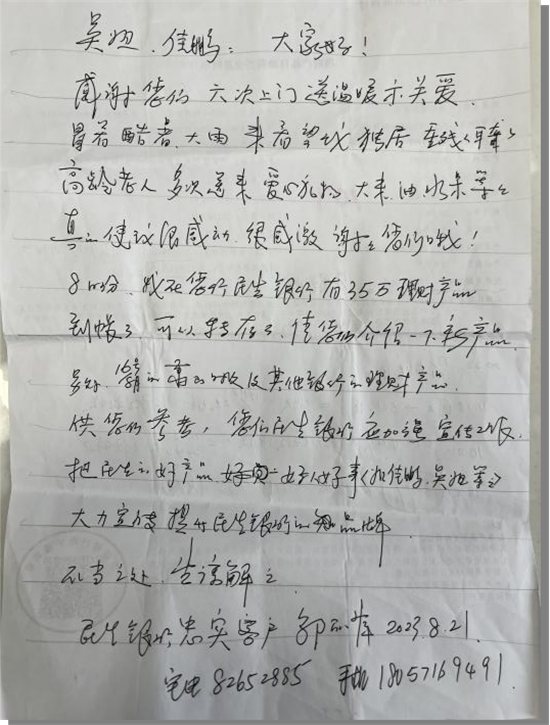 吴妲、佳鹏: 大家好!
感谢您们 六次上门送温暖示关爱
冒着酷暑、大雨 来看望我 独居 重残(耳聋)
高龄老人 多次送来爱心礼物、大米、油 水果等等
真的使我很感动 很感激 谢谢您们哦!
8月份、我在您们民生银行有35万理财产品
到帐了、可以转存了、请您们介绍一下新产品
另外、 的 及其他银行的理财产品、
供您们参考, 您们民生银行应加强宣传工作、
把民生的好产品 好人好事(如佳鹏、吴妲等)
大力宣传 提升民生银行的知品牌
不当之处、先谅解之
民生银行忠实客户 郭 2023.8.21.
宅电 82652885 手机 18057169491